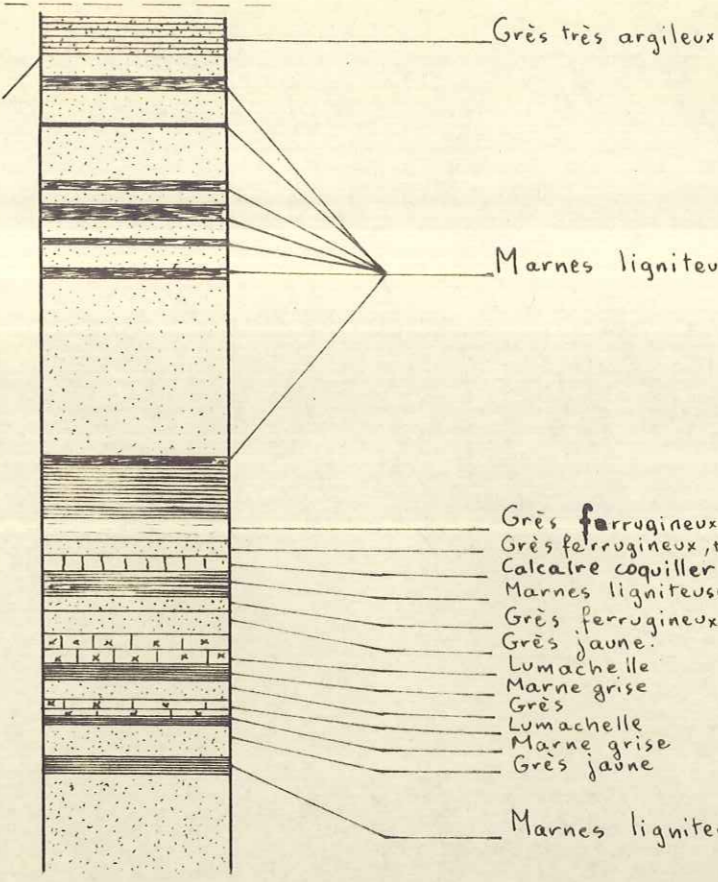 Grès très argileux
Marnes ligniteu
Grès ferrugineux
Grès ferrugineux, t
Calcaire coquiller
Marnes ligniteuse
Grès ferrugineux
Grès jaune.
Lumachelle
Marne grise
Grès
Lumachelle
Marne grise
Grès jaune
Marnes lignite